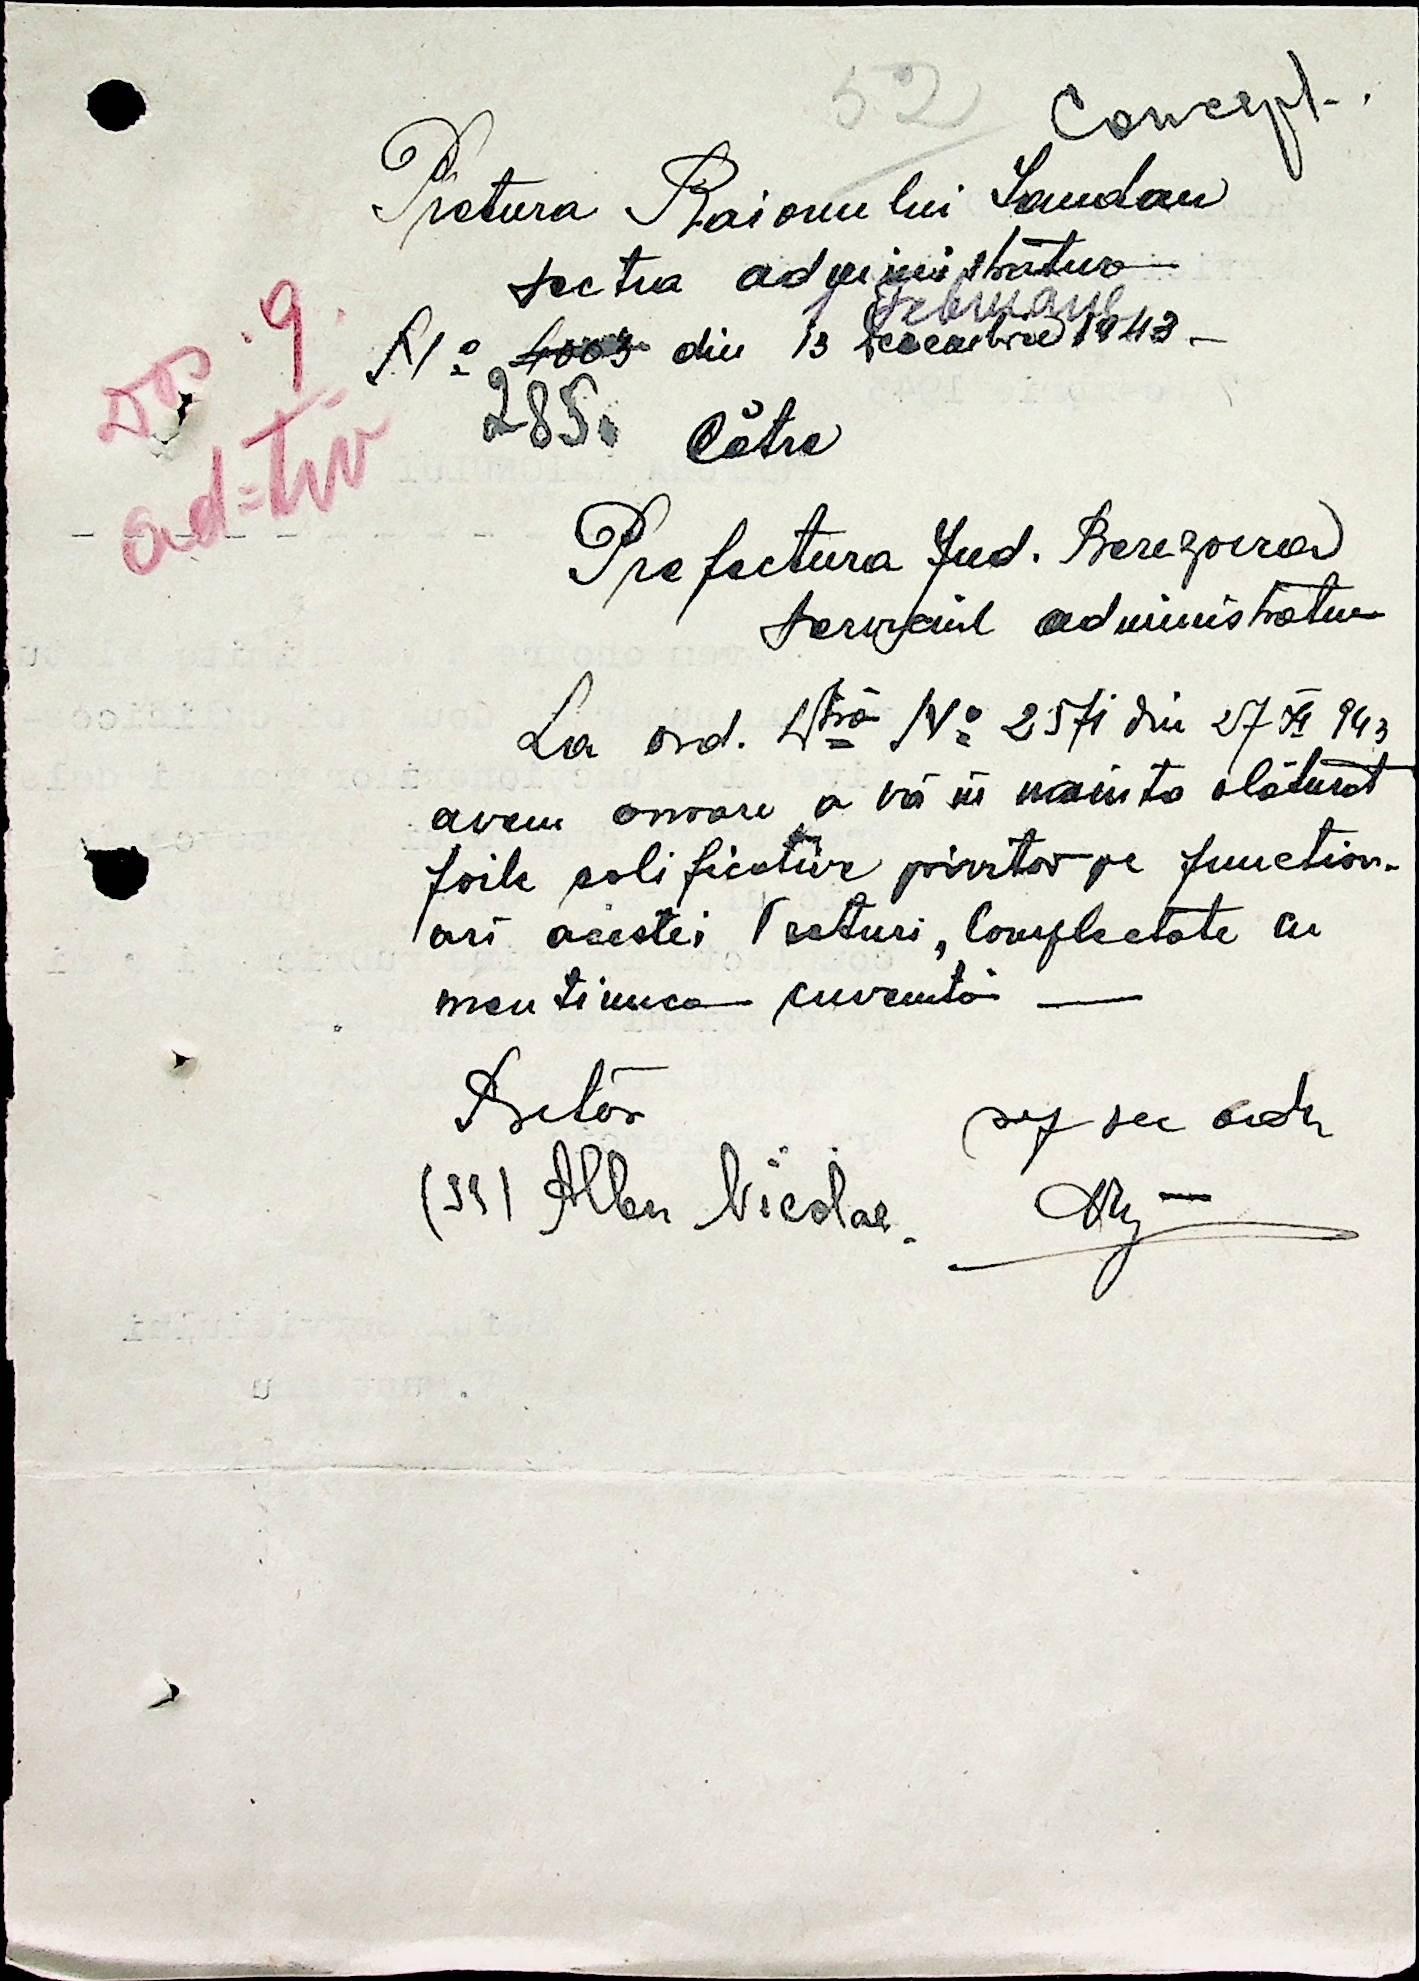 52
Concept.
Pretura Raionului Landau
secția administrativă
februarie
No 4003 din 13 Decembrie 1943.-
285.
9.
ad=tiv
Către
Prefectura Jud. Berezovca
serviciul administrativ
La ord. Dvtră No 2571 din 27 XI 943
avem onoare a vă înainta alăturat
foile calificative privitor pe function-
ari acestei Preturi, Complectate cu
mentiunea cuvenită —
Pretor
șef sec adtv
(ss) Albu Nicolae.